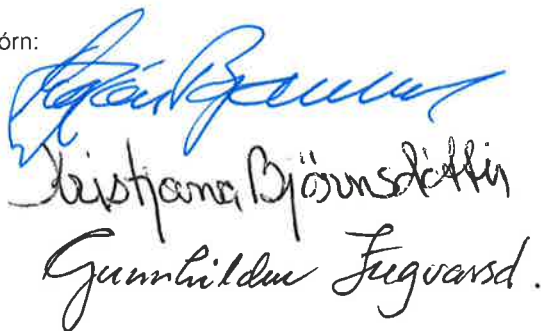 órn:
Kristjana Björnsdóttir
Gunnhildur Ingvarsd.